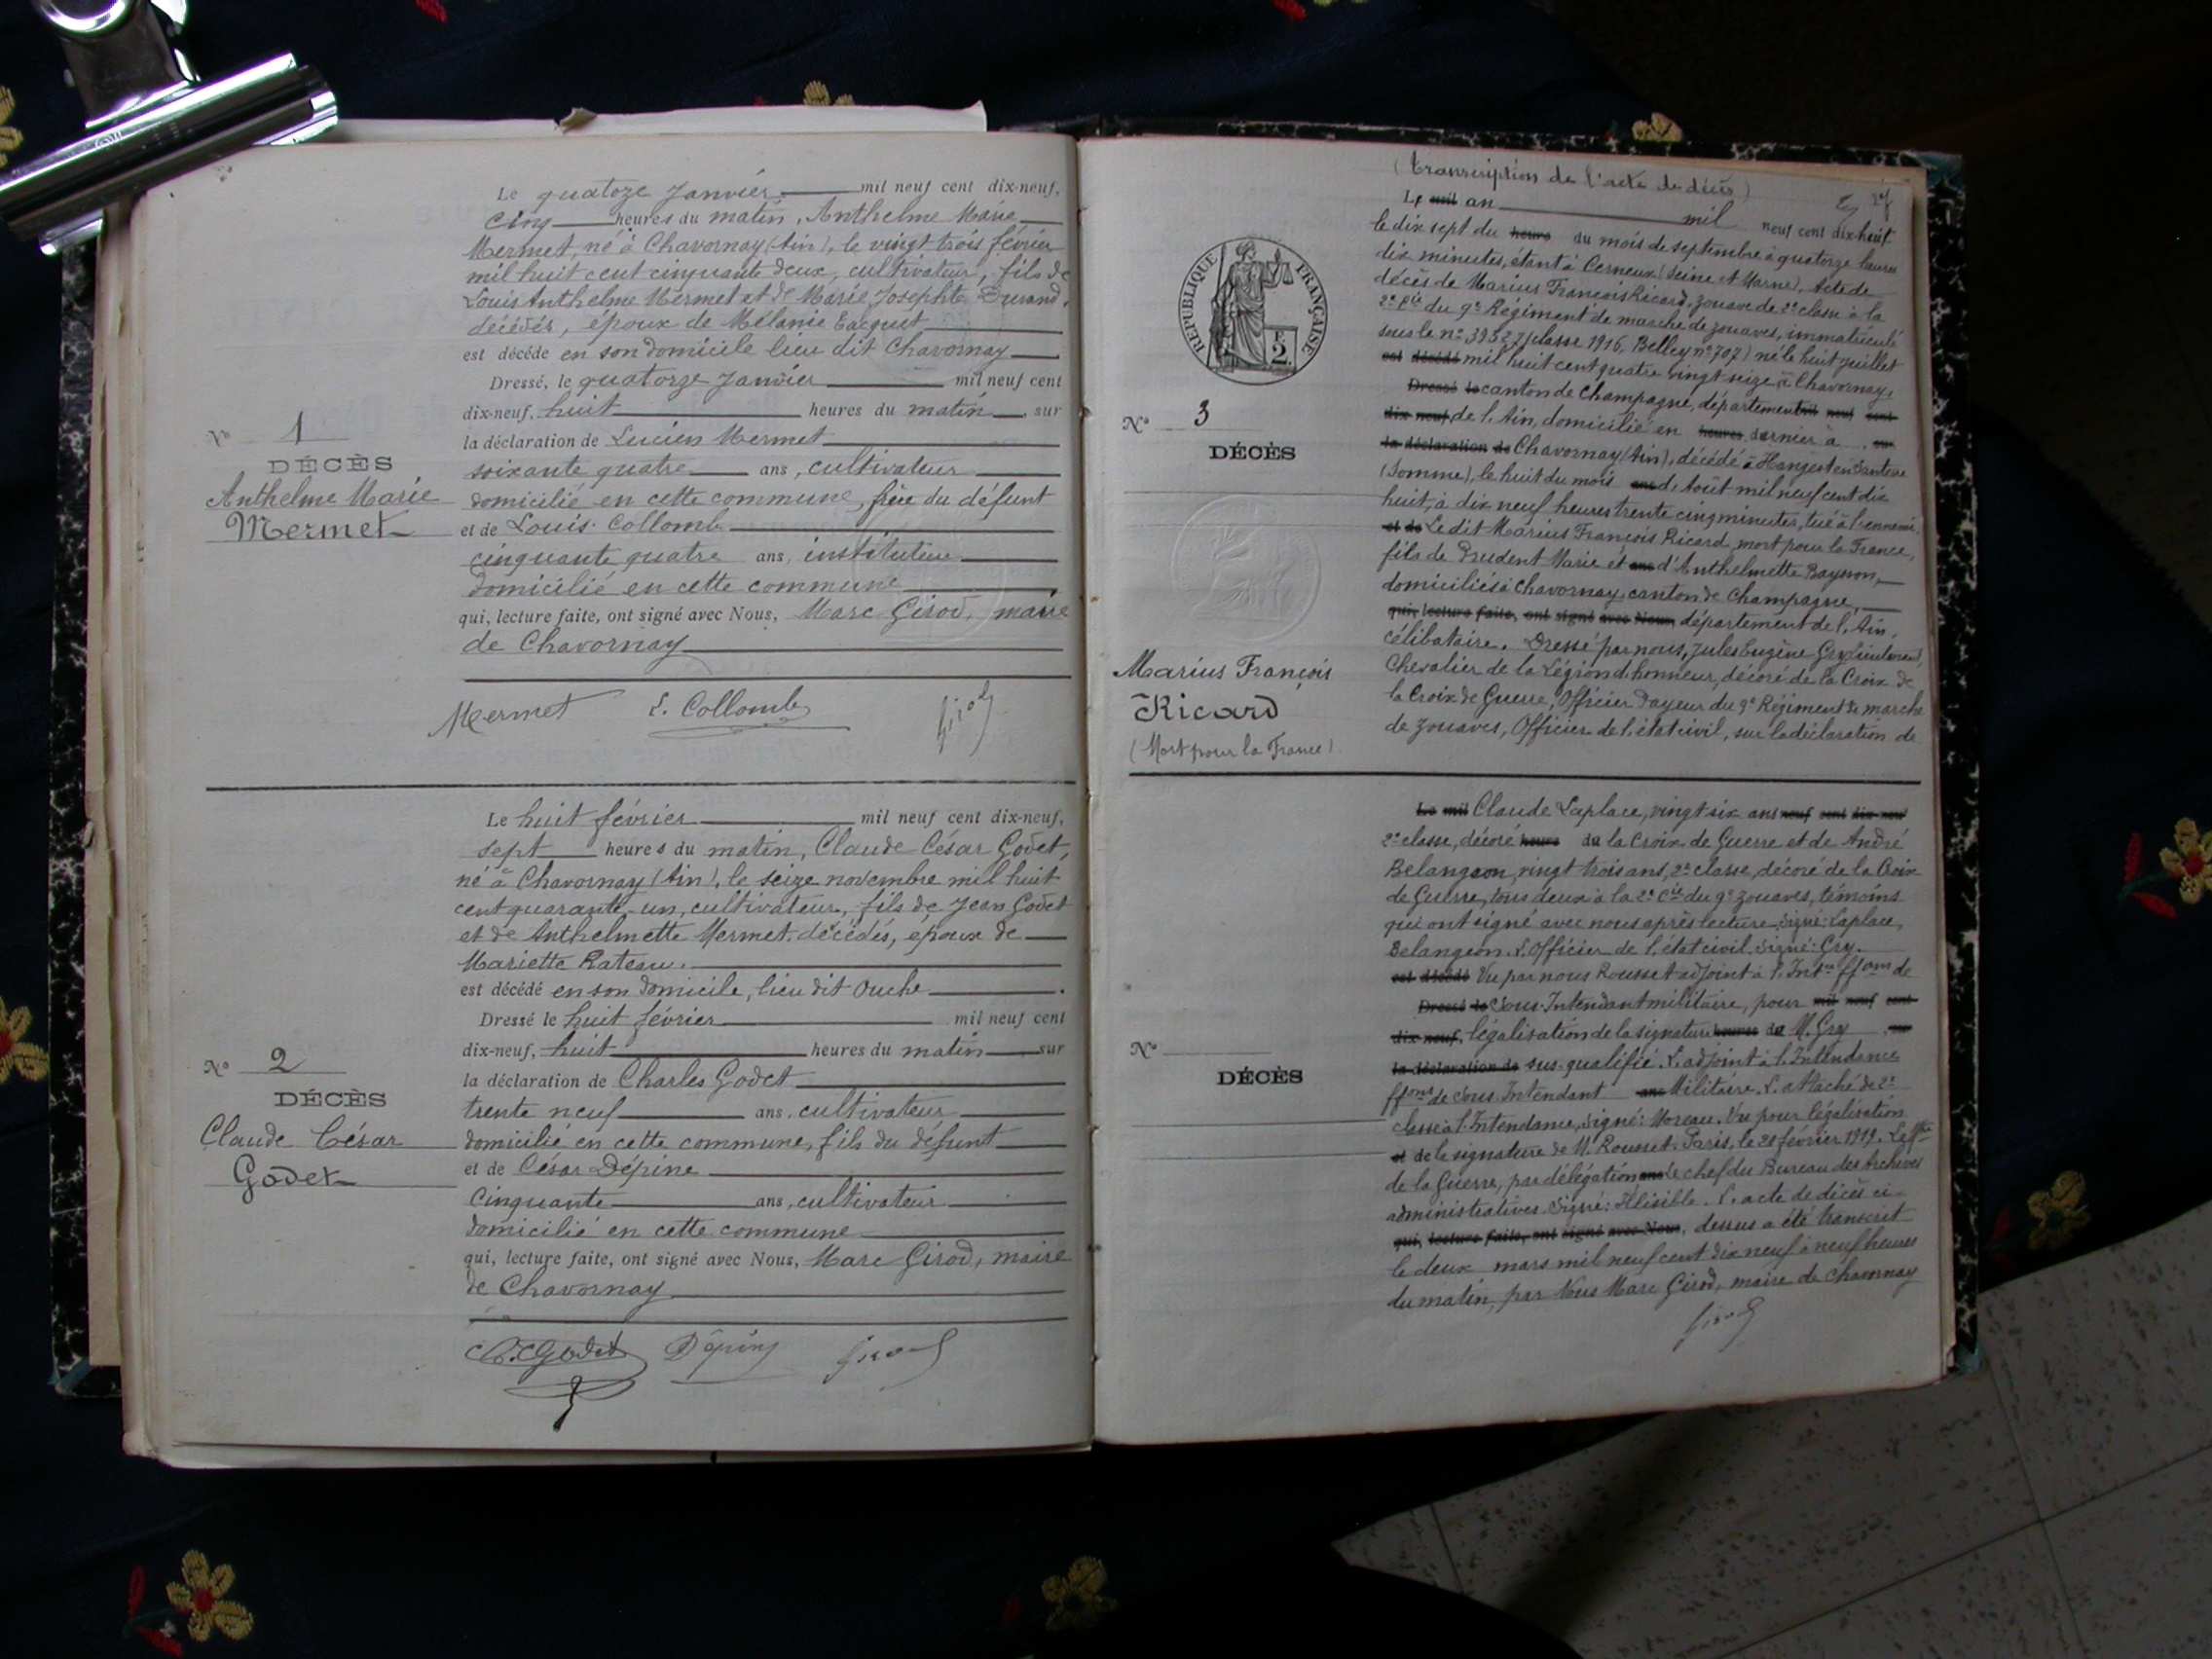 Le quatoze Janvier mil neuf cent dix-neuf,
cinq heures du matin, Anthelme Marie
Mermet, né à Chavornay (Ain), le vingt trois février
mil huit cent cinquante deux, cultivateur, fils de
Louis Anthelme Mermet et de Marie Josephte Durand,
décédés, époux de Mélanie
est décédé en son domicile lieu dit Chavornay
Dressé, le quatorze Janvier mil neuf cent
dix-neuf, huit heures du matin, sur
la déclaration de Lucien Mermet
soixante quatre ans, cultivateur
domicilié en cette commune, frère du défunt
et de Louis Collomb
cinquante quatre ans, instituteur
domicilié en cette commune
qui, lecture faite, ont signé avec Nous, Marc Girod, maire
de Chavornay
N° 1
DÉCÈS
Anthelme Marie
Mermet
Mermet L. Collomb Girod
Le huit février mil neuf cent dix-neuf,
sept heures du matin, Claude César Godet,
né à Chavornay (Ain), le seize novembre mil huit
cent quarante-un, cultivateur, fils de Jean Godet
et de Anthelmette Mermet, décédés, époux de
Mariette Rateau.
est décédé en son domicile, lieu dit Ouche
Dressé le huit février mil neuf cent
dix-neuf, huit heures du matin sur
la déclaration de Charles Godet
trente neuf ans, cultivateur
domicilié en cette commune, fils du défunt
et de César Dépine
Cinquante ans, cultivateur
domicilié en cette commune
qui, lecture faite, ont signé avec Nous, Marc Girod, maire
de Chavornay
N° 2
DÉCÈS
Claude César
Godet
Godet Dépine Girod
(Transcription de l'acte de décès)
L' mil an mil neuf cent dix-huit
le dix sept du heure du mois de septembre à quatorze heures
dix minutes, étant à Cerneux (Seine et Marne). Acte de
décès de Marius François Ricard, zouave de 2e classe à la
2e Cie du 9e Régiment de marche de zouaves, immatriculé
sous le n° 39527 (classe 1916, Belley n° 707) né le huit juillet
est décédé mil huit cent quatre vingt seize à Chavornay,
Dressé le canton de Champagne, département mil neuf cent
dix-neuf, de l'Ain, domicilié en heures dernier à sur
la déclaration de Chavornay (Ain), décédé à Hangest en Santerre
(Somme), le huit du mois ans d'Août mil neuf cent dix
huit, à dix neuf heures trente cinq minutes, tué à l'ennemi.
et de Le dit Marius François Ricard mort pour la France,
fils de Prudent Marie et ans d'Anthelmette Baysson,
domiciliés à Chavornay, canton de Champagne,
qui, lecture faite, ont signé avec Nous, département de l'Ain,
célibataire. Dressé par nous, Jules Eugène Gry, Lieutenant,
Chevalier de la Légion d'honneur, décoré de la Croix de
la Croix de Guerre, Officier Payeur du 9e Régiment de marche
de zouaves, Officier de l'état civil, sur la déclaration de
RÉPUBLIQUE FRANÇAISE
F. 2.
N° 3
DÉCÈS
Marius François
Ricard
(Mort pour la France)
Le mil Claude Laplace, vingt six ans neuf cent dix-neuf
2e classe, décoré heure du la Croix de Guerre et de André
Belangeon, vingt trois ans, 2e classe, décoré de la Croix
de Guerre, tous deux à la 2e Cie du 9e zouaves, témoins
qui ont signé avec nous après lecture. Signé: Laplace,
Belangeon. L'Officier de l'état civil. Signé: Gry.
est décédé Vu par nous Rousset adjoint à l'Int on ff ons de
Dressé le Sous-Intendant militaire, pour mil neuf cent
dix-neuf, légalisation de la signature heures du M. Gry sur
la déclaration de sus-qualifié. L'adjoint à l'Intendance
ff ons de Sous Intendant ans Militaire. L'attaché de 2e
classe à l'Intendance, Signé: Moreau. Vu pour légalisation
et de la signature de M. Rousset. Paris, le 21 février 1919.
de la Guerre, par délégation ans le chef du Bureau des Archives
administratives. Signé: Illisible. L'acte de décès ci-
qui, lecture faite, ont signé avec Nous, dessus a été transcrit
le deux mars mil neuf cent dix neuf à neuf heures
du matin, par Nous Marc Girod, maire de Chavornay
Girod
N°
DÉCÈS